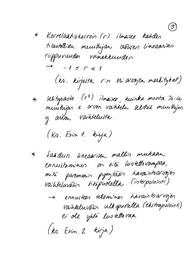 3
* Korrelaatiokerroin (r) ilmaisee kahden
tilastollisen muuttujan välisen lineaarisen
riippuvuuden voimakkuuden
→ -1 ≤ r ≤ 1
(ks. kirjasta r:n eri arvojen merkitykset)
* Selitysaste (r²) ilmaisee, kuinka monta %:ia
muuttujan x arvon vaihtelu selittää muuttujan
y arvon vaihtelusta.
(ks. Esim. 1. kirja)
* Saadun lineaarisen mallin mukaan
ennustaminen on sitä luotettavampaa,
mitä paremmin pysytään havaintoarvojen
vaihteluvälin sisäpuolella (interpolointi)
→ ennusteen tekeminen havaintoarvojen
vaihteluvälin ulkopuolella (ekstrapolointi)
ei ole yhtä luotettavaa
(ks. Esim. 2 kirja)